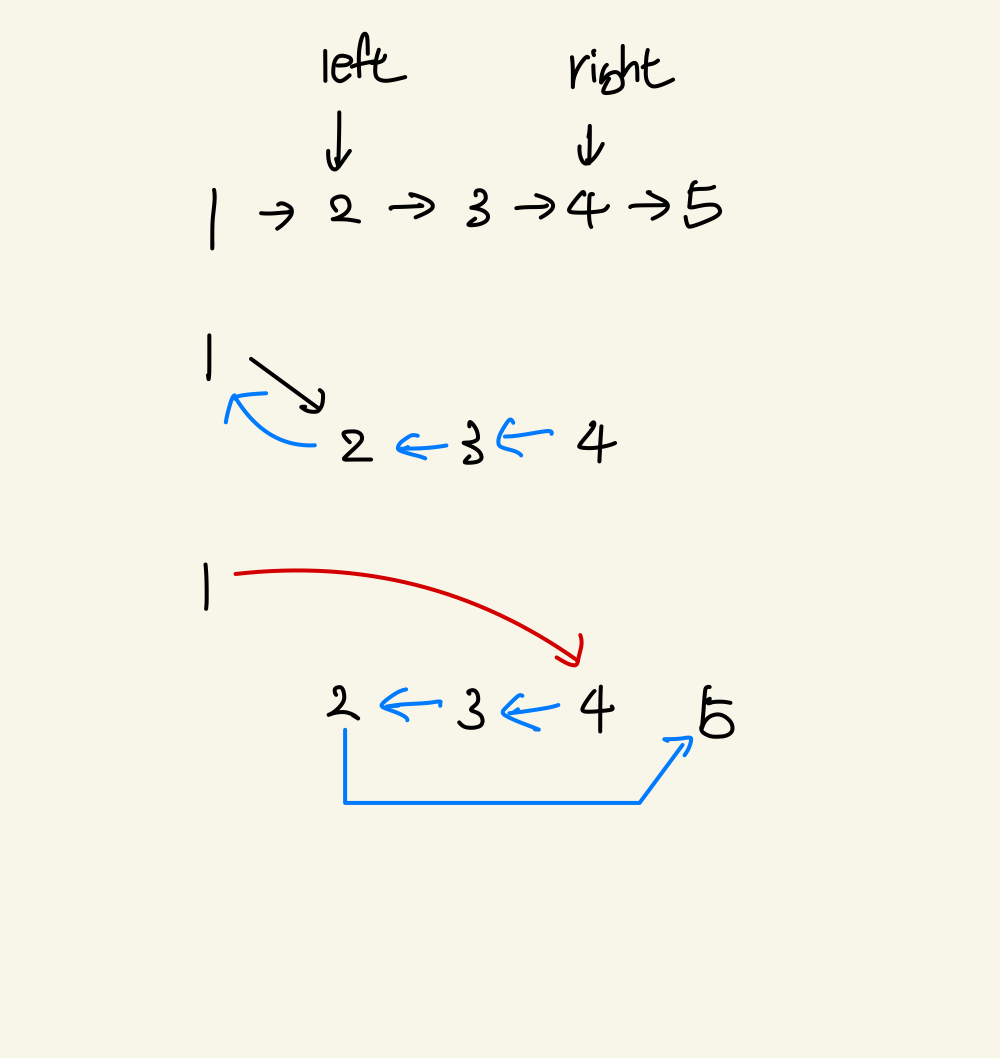 left right
1 → 2 → 3 → 4 → 5
1
2 ← 3 ← 4
1
2 ← 3 ← 4 5